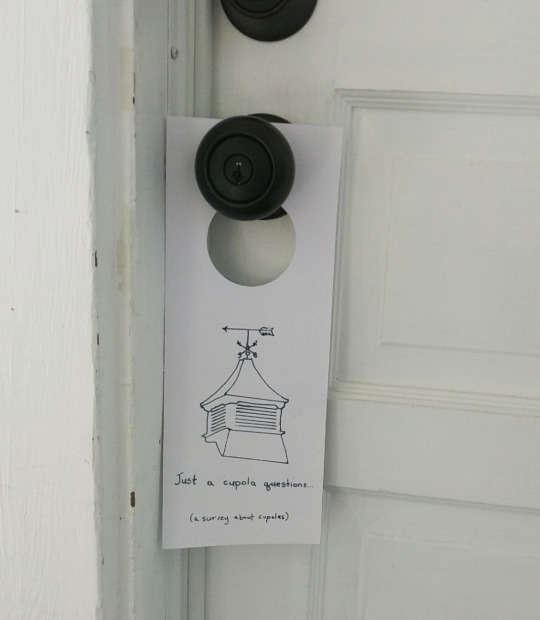 Just a cupola questions...
(a survey about cupolas)